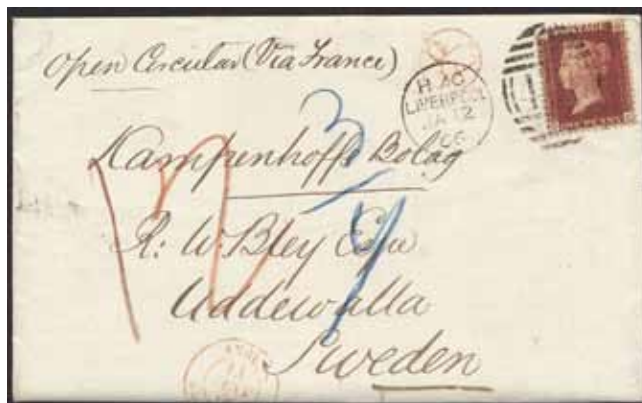 Open Circular (Via France)
LIVERPOOL
JA 12
66
Kampenhoffs Bolag
R: W. Bley Esqr
Uddewalla
Sweden